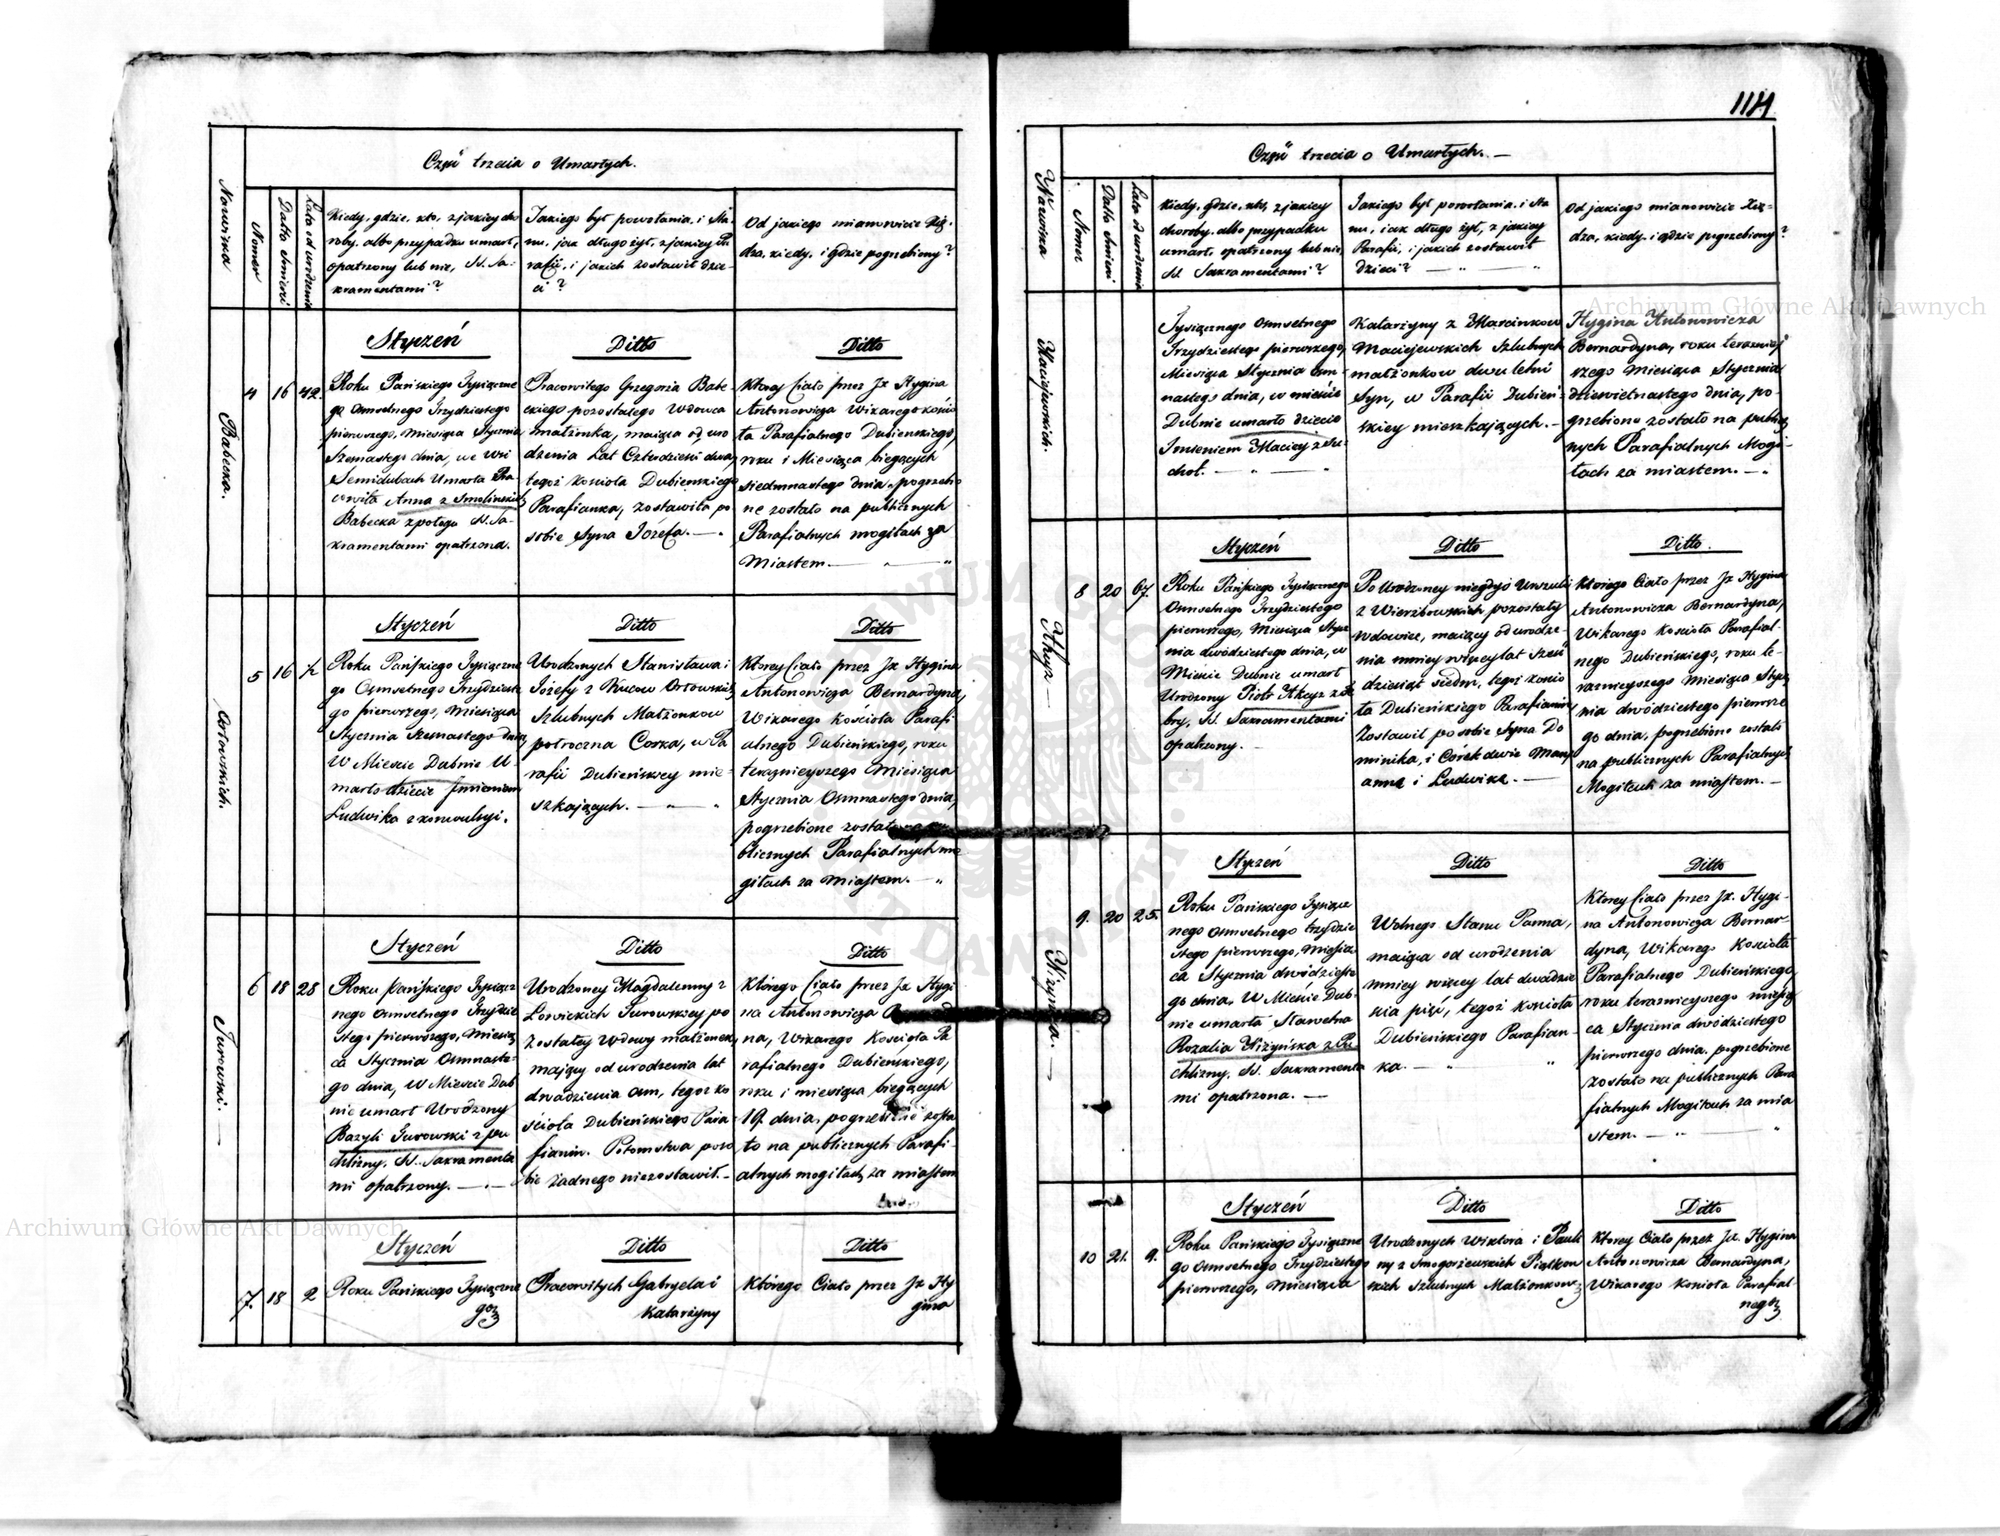 Część trzecia o Umarłych.
Nazwiska
Numer
Datta Śmierci
Lata od urodzenia
Kiedy, gdzie, kto, z jakiey cho
roby, albo przypadku umarł,
opatrzony lub nie, SS. Sa-
kramentami?
Jakiego był powołania, i Sta-
nu, jak długo żył, z jakiey Pa
rafii, i jakich zostawił dzie-
ci?
Od jakiego mianowicie Xię-
dza, kiedy, i gdzie pogrzebiony?
Babecka.
4
16
42
Styczeń
Roku Pańskiego Tysiączne
go Osmsetnego Trzydziestego
pierwszego, Miesiąca Stycznia
Szesnastego dnia, we Wsi
Semidubach Umarła Pra
cowita Anna z Smolińskich
Babecka z połogu SS. Sa-
kramentami opatrzona.
Ditto
Pracowitego Grzegorza Babe-
ckiego pozostałego Wdowca
małżonka, maiąca od uro
dzenia Lat Czterdzieści dwa,
tegoż Kościoła Dubieńskiego
Parafianka, zostawiła po
sobie Syna Józefa. —.
Ditto
Ktorey Ciało przez Jx Hygina
Antonowicza Wikarego Kościo
ła Parafialnego Dubieńskiego,
roku i Miesiąca bieżących
siedmnastego dnia, pogrzebio
ne zostało na publicznych
Parafialnych mogiłach za
Miastem. —
Orłowskich.
5
16
½
Styczeń
Roku Pańskiego Tysiączne
go Osmsetnego Trzydzieste
go pierwszego, Miesiąca
Stycznia Szesnastego dnia,
W Mieście Dubnie U-
marło dziecie Imieniem
Ludwika z konwulsyi.
Ditto
Urodzonych Stanisława i
Józefy z Kucow Orłowskich
Szlubnych Małżonkow
połroczna Corka, w Pa
rafii Dubieńskiey mie-
szkających. —
Ditto
Ktorey Ciało przez Jx Hygina
Antonowicza Bernardyna,
Wikarego Kościoła Parafi
alnego Dubieńskiego, roku
teraznieyszego Miesiąca
Stycznia Osmnastego dnia,
pogrzebione zostało na pu
blicznych Parafialnych mo
giłach za Miastem. —
Jurowski. —
6
18
28
Styczeń
Roku Pańskiego Tysiącz
nego Osmsetnego Trzydzie
stego pierwszego, Miesią
ca Stycznia Osmnaste-
go dnia, W Mieście Dub
nie umarł Urodzony
Bazyli Jurowski z pu
chlizny, SS. Sakramenta
mi opatrzony. —
Ditto
Urodzoney Magdalenny z
Łowickich Jurowskiey po
zostałey Wdowy małżonek,
mający od urodzenia lat
dwadzieścia osm, tegoż Ko
ścioła Dubieńskiego Para
fianin. Potomstwa po so
bie żadnego niezostawił. —
Ditto
Którego Ciało przez Jx Hygi
na Antonowicza
na, Wikarego Kościoła Pa
rafialnego Dubieńskiego,
roku i miesiąca bieżących
19. dnia, pogrzebione zosta
ło na publicznych Parafi-
alnych mogiłach za miastem
7.
18
2
Styczeń
Roku Pańskiego Tysiączne
go
Ditto
Pracowitych Gabryela i
Katarzyny
Ditto
Którego Ciało przez Jx Hy
gina
1184
Część trzecia o Umarłych. —
Nazwiska
Numer
Datta Śmierci
Lata od urodzenia
Kiedy, gdzie, kto, z jakiey
choroby, albo przypadku
umarł, opatrzony lub nie,
SS. Sakramentami?
Jakiego był powołania, i Sta
nu, i jak długo żył, z jakiey
Parafii, i jakich zostawił
dzieci? —
Od jakiego mianowicie Xię-
dza, kiedy, i gdzie pogrzebiony?
Maciejewskich.
Tysiącznego Osmsetnego
Trzydziestego pierwszego,
Miesiąca Stycznia Osm-
nastego dnia, w mieście
Dubnie umarło dziecie
Imieniem Maciey z Su-
chot. —
Katarzyny z Marcinkow
Maciejewskich Szlubnych
małżonkow dwu letni
Syn, w Parafii Dubień-
skiey mieszkających. —
Hygina Antonowicza
Bernardyna, roku teraźniej
szego Miesiąca Stycznia
dziewietnastego dnia, po-
grzebione zostało na publicz
nych Parafialnych Mogi-
łach za miastem. —
8
20
67.
Styczeń
Roku Pańskiego Tysiącznego
Osmsetnego Trzydziestego
pierwszego, Miesiąca Stycz
nia dwódziestego dnia, w
Mieście Dubnie umarł
Urodzony Piotr
SS. Sakramentami
opatrzony. —
Ditto
Po Urodzoney niegdyś Urszuli
z Wierzbowskich pozostały
Wdowiec, maiący od urodze-
nia mniey więcey lat Sześć
dziesiąt siedm, tegoż Kościo
ła Dubieńskiego Parafianin,
Zostawił po sobie Syna Do
minika, i Córek dwie Mary
anna i Ludwika. —
Ditto.
Ktorego Ciało przez Jx Hygina
Antonowicza Bernardyna,
Wikarego Kościoła Parafial-
nego Dubieńskiego, roku te-
raznieyszego Miesiąca Stycz
nia dwódziestego pierwsze
go dnia, pogrzebione zostało
na publicznych Parafialnych
Mogiłach za miastem. —
9.
20
25.
Styczeń
Roku Pańskiego Tysiącz
nego Osmsetnego trzydzie
stego pierwszego, Miesią
ca Stycznia dwódzieste
go dnia, W Mieście Dub-
nie umarła Sławetna
Rozalia Wiżyńska z Pu
chlizny, SS. Sakramenta
mi opatrzona. —
Ditto
Wolnego Stanu Panna,
maiąca od urodzenia
mniey więcey lat dwadzie
ścia pięć, tegoż Kościoła
Dubieńskiego Parafian-
ka. —
Ditto
Ktorey Ciało przez Jx. Hygi-
na Antonowicza Bernar-
dyna, Wikarego Kościoła
Parafialnego Dubieńskiego
roku teraznieyszego miesią
ca Stycznia dwódziestego
pierwszego dnia, pogrzebione
zostało na publicznych Para
fialnych Mogiłach za mia
stem. —
10
21.
9.
Styczeń
Roku Pańskiego Tysiączne
go Osmsetnego Trzydziestego
pierwszego, Miesiąca
Ditto
Urodzonych Wiktora i Pauli
ny z Smogorzewskich Piątkow
skich Szlubnych Małżonkow
Ditto
Ktorey Ciało przez Jx. Hygina
Antonowicza Bernardyna,
Wikarego Kościoła Parafial
nego
Archiwum Główne Akt Dawnych
Archiwum Główne Akt Dawnych